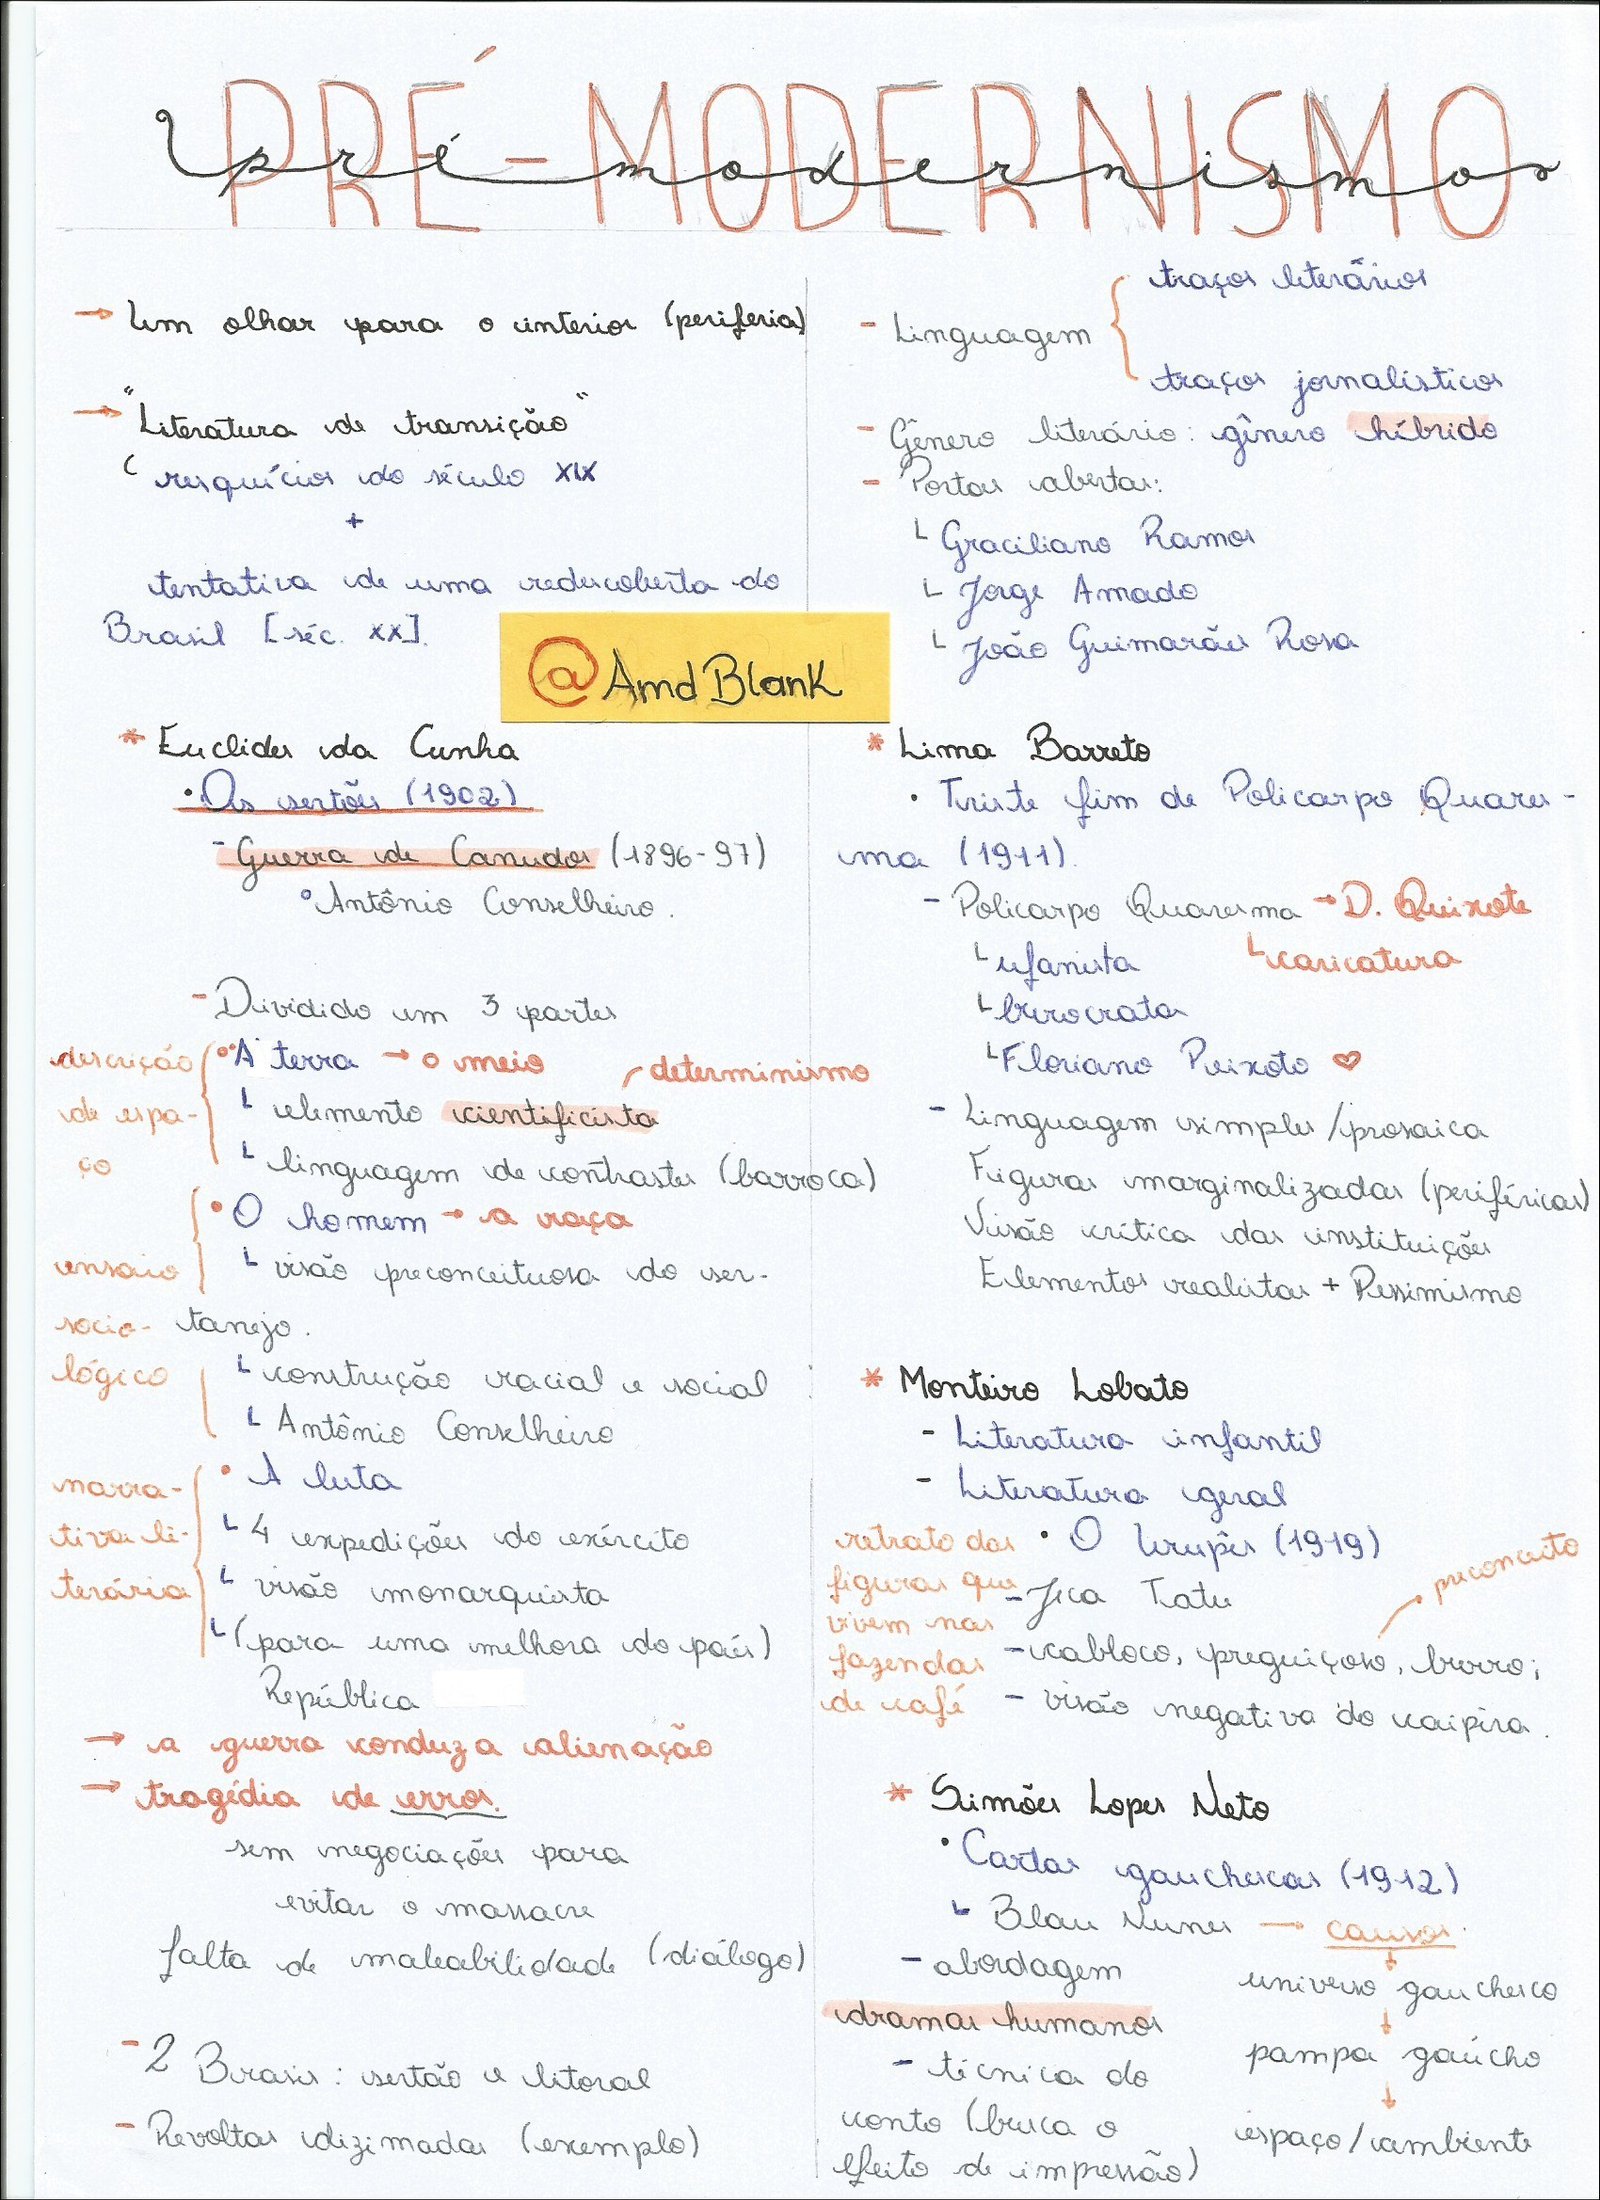 PRÉ-MODERNISMO
pré-modernismo
→ Um olhar para o interior (periferia)
→ "Literatura de transição"
resquícios do século XIX
+
tentativa de uma redescoberta do
Brasil [séc. XX].
@AmdBlank
* Euclides da Cunha
• Os sertões (1902)
- Guerra de Canudos (1896-97)
° Antônio Conselheiro.
- Dividido em 3 partes
descrição de espaço
• A terra → o meio
determinismo
└ elemento cientificista
└ linguagem de contrastes (barroca)
ensaio sociológico
• O homem → a raça
└ visão preconceituosa do ser-
tanejo.
└ construção racial e social
└ Antônio Conselheiro
narrativa literária
• A luta
└ 4 expedições do exército
└ visão monarquista
└ (para uma melhora do país)
República
→ a guerra conduz a alienação
→ tragédia de erros.
sem negociações para
evitar o massacre
falta de maleabilidade (diálogo)
- 2 Brasis: sertão e litoral
- Revoltas dizimadas (exemplo)
traços literários
- Linguagem
traços jornalísticos
- Gênero literário: gênero híbrido
- Portas abertas:
└ Graciliano Ramos
└ Jorge Amado
└ João Guimarães Rosa
* Lima Barreto
• Triste fim de Policarpo Quares-
ma (1911).
- Policarpo Quaresma → D. Quixote
└ ufanista └ caricatura
└ burocratas
└ Floriano Peixoto ♡
- Linguagem simples/prosaica
Figuras marginalizadas (periféricas)
Visão crítica das instituições
Elementos realistas + Pessimismo
* Monteiro Lobato
- Literatura infantil
- Literatura geral
• O Urupês (1919)
retrato das
figuras que
vivem nas
fazendas
de café
preconceito
- Jeca Tatu
- cabloco, preguiçoso, burro;
- visão negativa do caipira.
* Simões Lopes Neto
• Cartas gauchescas (1912)
└ Blau Nunes → causos.
- abordagem
dramas humanos
- técnica do
conto (busca o
efeito de impressão)
universo gauchesco
↓
pampa gaúcho
↓
espaço/ambiente